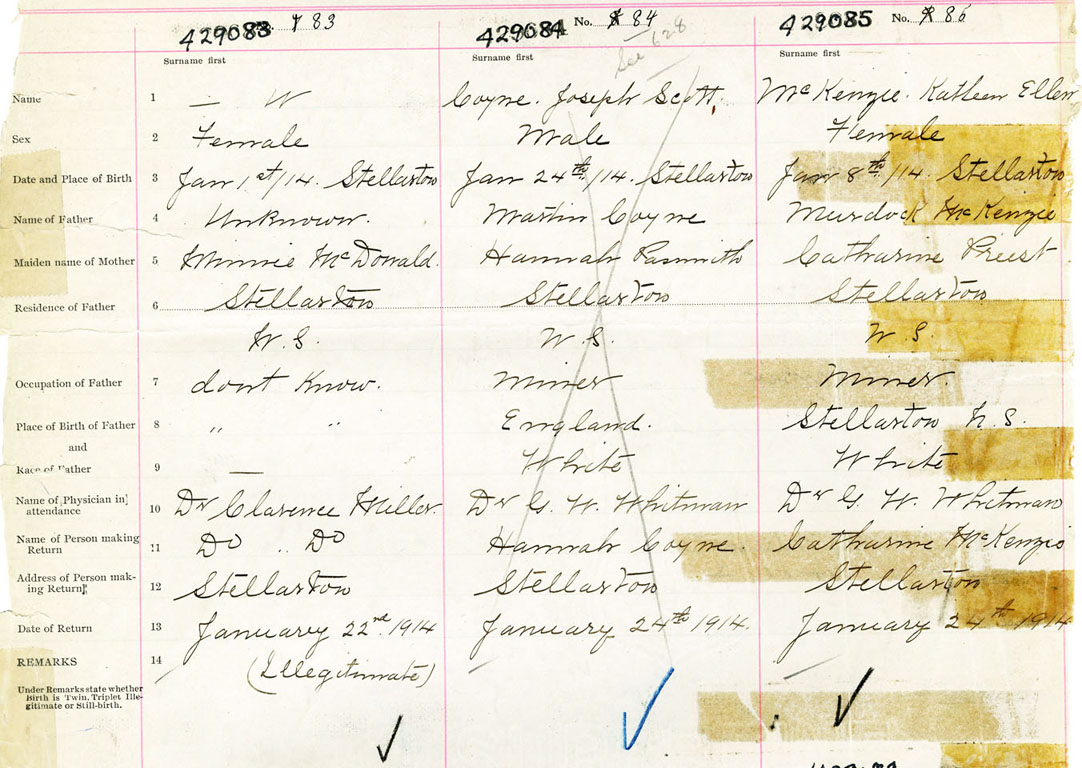 429083 83
429084 No. 84
429085 No. 85
See 628
Surname first Surname first Surname first
Name 1 — Coyne. Joseph Scott. McKenzie. Kathleen Ellen
Sex 2 Female Male Female
Date and Place of Birth 3 Jan 1st/14. Stellarton Jan 24th/14. Stellarton Jan 8th/14. Stellarton
Name of Father 4 Unknown. Martin Coyne Murdock McKenzie
Maiden name of Mother 5 Minnie McDonald. Hannah Catharine Priest
Residence of Father 6 Stellarton Stellarton Stellarton
N.S. N.S. N.S.
Occupation of Father 7 dont Know. Miner Miner.
Place of Birth of Father 8 " " England. Stellarton N.S.
and
Race of Father 9 — White White
Name of Physician in 10 Dr Clarence Miller. Dr G. W. Whitman Dr G. W. Whitman
attendance
Name of Person making 11 Do " Do Hannah Coyne. Catharine McKenzie
Return
Address of Person mak- 12 Stellarton Stellarton Stellarton
ing Return
Date of Return 13 January 22nd 1914 January 24th 1914. January 24th 1914
REMARKS 14 (Illegitimate)
Under Remarks state whether
Birth is Twin, Triplet Ille-
gitimate or Still-birth.